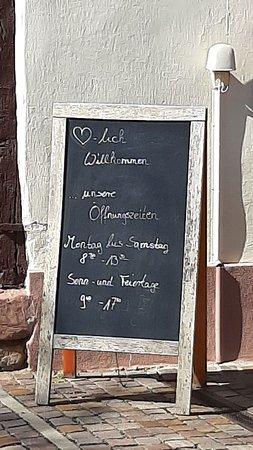 ♡-lich
Willkommen
... unsere
Öffnungszeiten
Montag bis Samstag
8³⁰ - 13³⁰
Sonn- und Feiertage
9⁰⁰ - 17⁰⁰